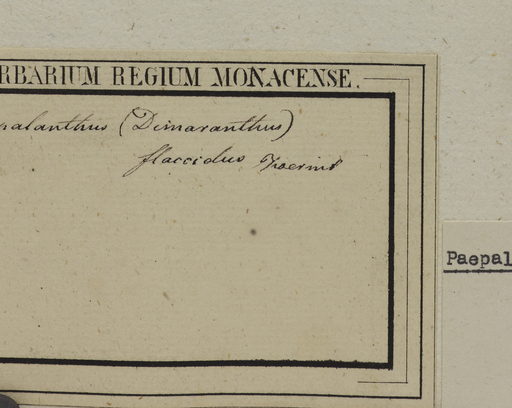 RBARIUM REGIUM MONACENSE.
palanthus (Dimaranthus)
flaccidus Koernke
Paepal